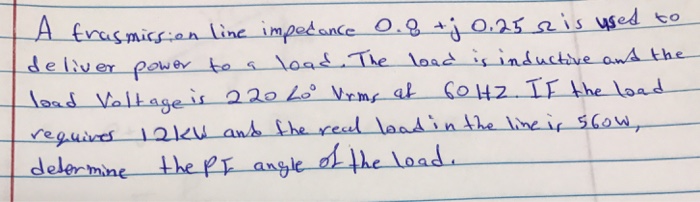 A frasmission line impedance 0.8 +j 0.25 Ω is used to
deliver power to a load. The load is inductive and the
load Voltage is 220∠0° Vrms at 60HZ. IF the load
requires 12kW and the real load in the line is 560W,
determine the PF angle of the load.